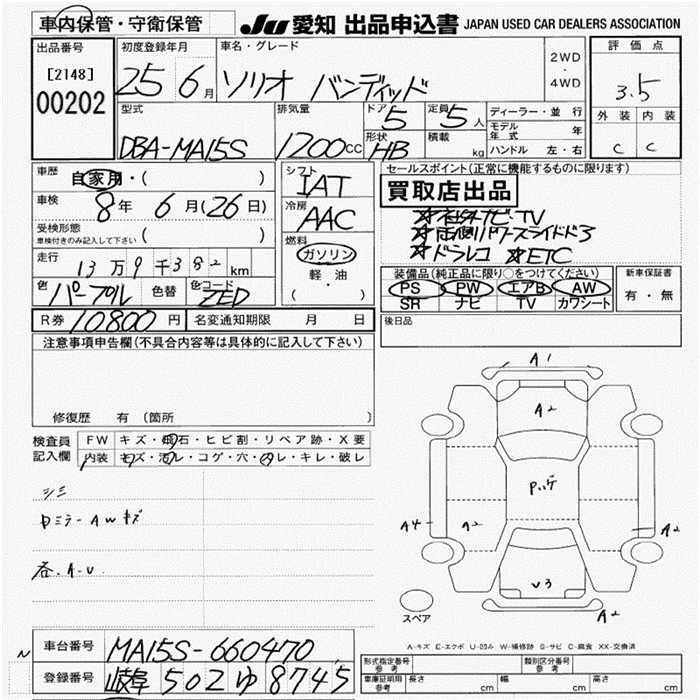 車内保管・守衛保管
JU 愛知 出品申込書 JAPAN USED CAR DEALERS ASSOCIATION
出品番号
[2148]
00202
初度登録年月
25 6月
車名・グレード
ソリオ バンディッド
2WD
・
4WD
評価点
3.5
外装 内装
C C
型式
DBA-MA15S
排気量
1200CC
ドア
5
形状
HB
定員
5人
積載
kg
ディーラー・並行
モデル年式 年
ハンドル 左・右
車歴
自家用・( )
車検
8年 6月(26日)
受検形態
車検付きのみ記入して下さい ( )
走行
13万9千382km
色
パープル
色替
色コード
ZED
シフト
IAT
冷房
AAC
燃料
ガソリン
軽・油
( )
セールスポイント(正常に機能するものに限ります)
買取店出品
☆社外ナビ・TV
☆両側パワースライドドア
☆ドラレコ ☆ETC
装備品(純正品に限り○をつけてください)
PS PW エアB AW
SR ナビ TV カワシート
新車保証書
有・無
R券 10800円
名変通知期限 月 日
後日品
注意事項申告欄(不具合内容等は具体的に記入して下さい)
修復歴 有 〔箇所 〕
検査員記入欄
FW キズ・飛石・ヒビ割・リペア跡・X要
内装 キズ・汚レ・コゲ・穴・スレ・キレ・破レ
シミ
ロミラー AWキズ
各.A.U
A1
A2
Pハゲ
A4
A2
A2
V3
A2
スペア
A-キズ E-エクボ U-凹み W-補修跡 S-サビ C-腐食 XX-交換済
N
車台番号 MA15S-660470
登録番号 岐阜 502 ゆ 8745
形式指定番号 参考
類別区分番号 参考
車庫証明用 参考
長さ cm
幅 cm
高さ cm